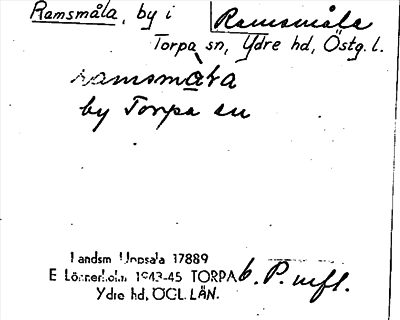 Ramsmåla, by i Ramsmåla
Torpa sn, Ydre hd, Östg. l.
by Torpa sn
Landsm Uppsala 17889
E Lönnerholm 1943-45 TORPA b. P. mfl.
Ydre hd, ÖGL. LÄN.